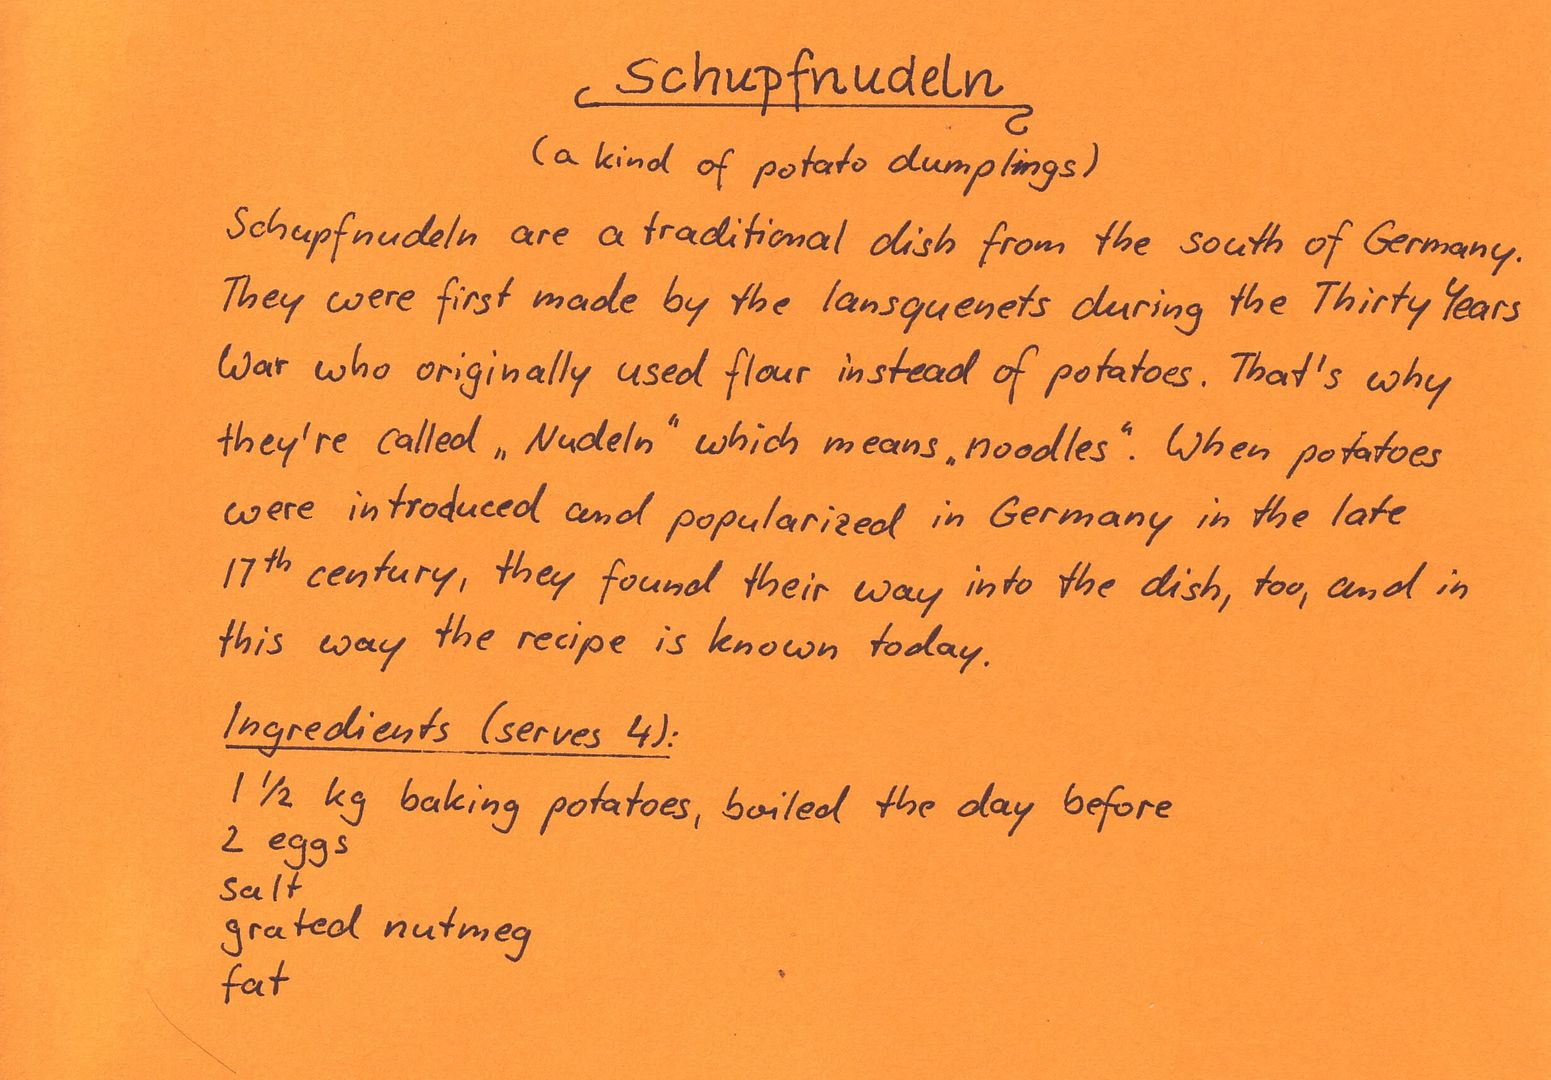 Schupfnudeln
(a kind of potato dumplings)
Schupfnudeln are a traditional dish from the south of Germany.
They were first made by the lansquenets during the Thirty Years
War who originally used flour instead of potatoes. That's why
they're called „Nudeln“ which means „noodles“. When potatoes
were introduced and popularized in Germany in the late
17th century, they found their way into the dish, too, and in
this way the recipe is known today.
Ingredients (serves 4):
1 1/2 kg baking potatoes, boiled the day before
2 eggs
salt
grated nutmeg
fat